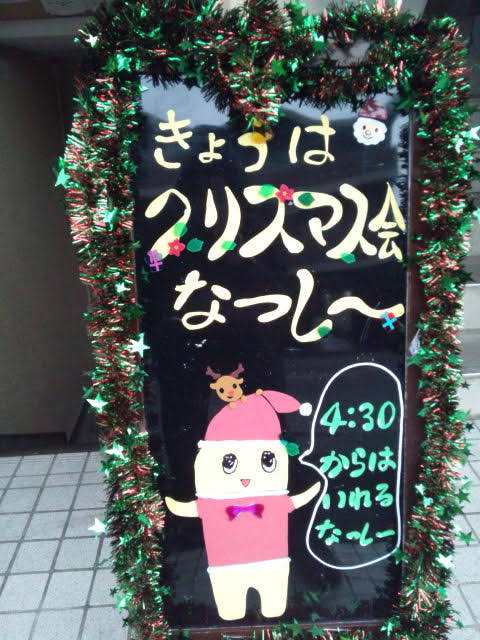 きょうは
クリスマス会
なっし〜
4:30
からは
いれる
なっしー